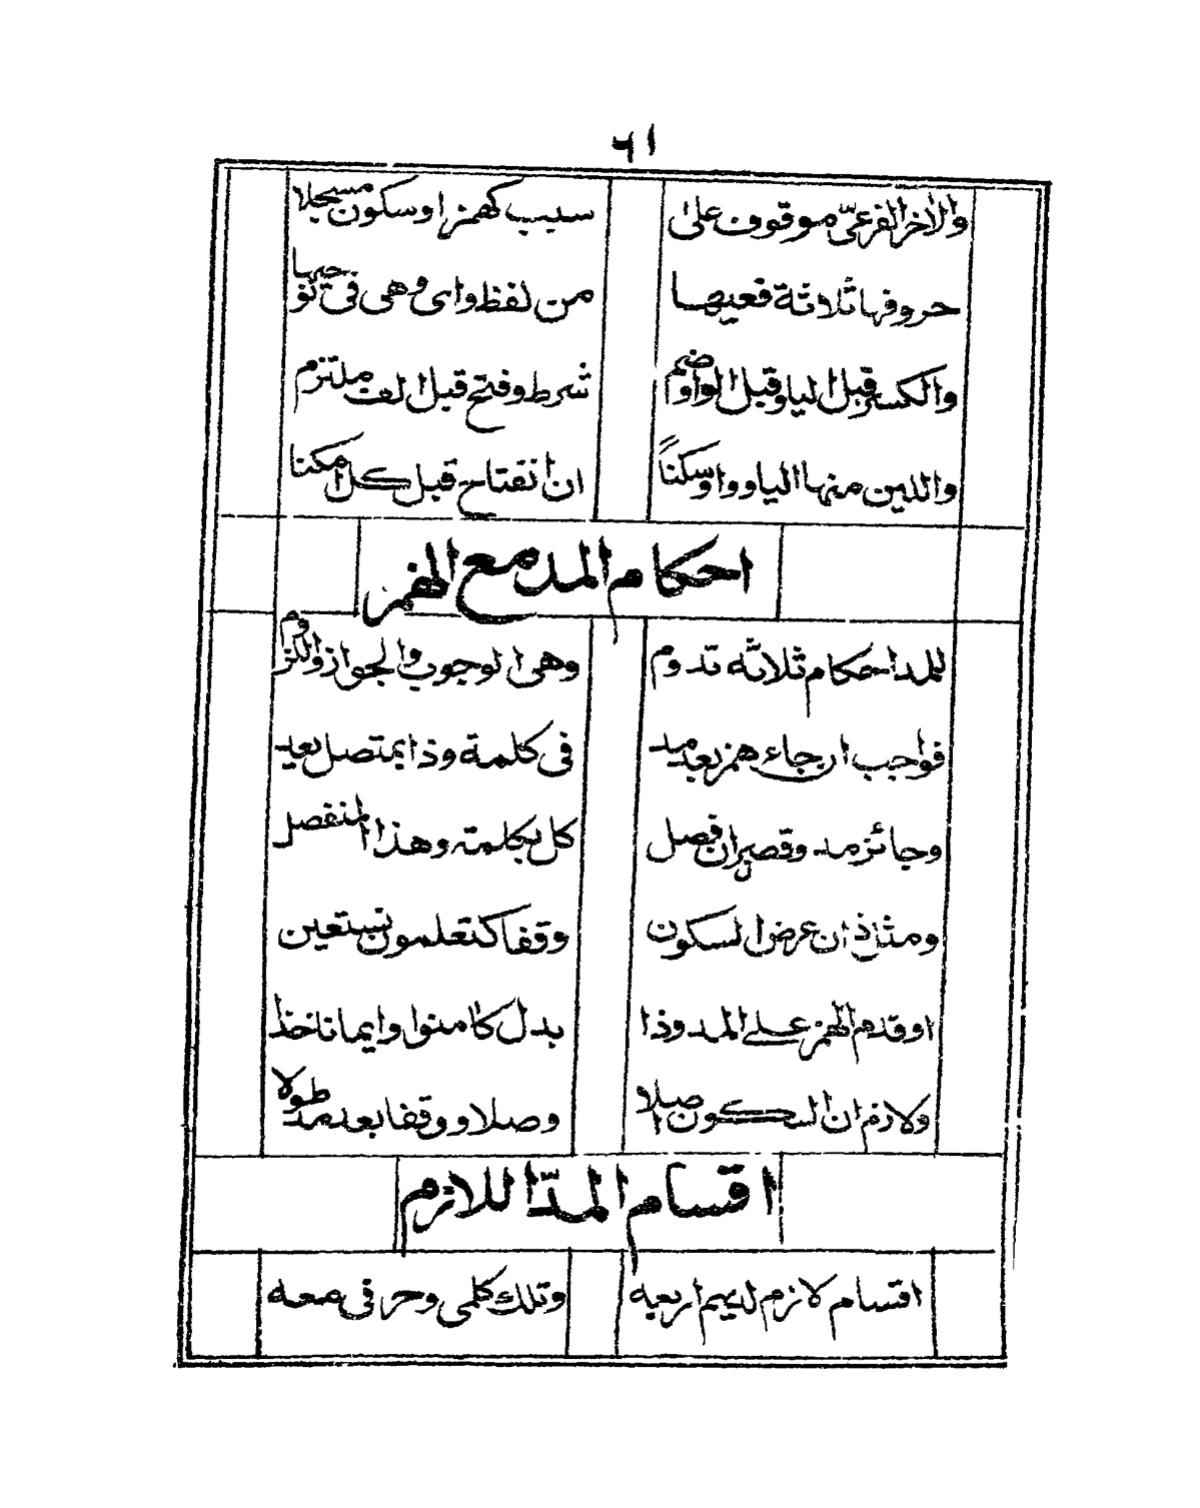 ٦١
والاخر الفرعيّ موقوف على سبب كهمز او سكون مسجلا
حروفها ثلاثة فعيها من لفظ واى وهى فى نوحيها
والكسر قبل اليا وقبل الواو ضم شرط وفتح قبل الف ملتزم
واللين منها اليا وواو سكناً ان انفتاح قبل كل امكنا
احكام المد مع الهمز
للمد احكام ثلاثه تدوم وهى الوجوب والجواز واللزوم
فواجب ان جاء همز بعد مد فى كلمة وذا بمتصل يعد
وجائز مد وقصر ان فصل كل بكلمة وهذا المنفصل
ومثل ذا ان عرض السكون وقفا كتعلمون نستعين
او قدم الهمز على المد وذا بدل كامنوا وايمانا خذا
ولازم ان السكون اصلا وصلا ووقفا بعد مد طولا
اقسام المدّ اللازم
اقسام لازم لديهم اربعه وتلك كلمى وحرفى معه